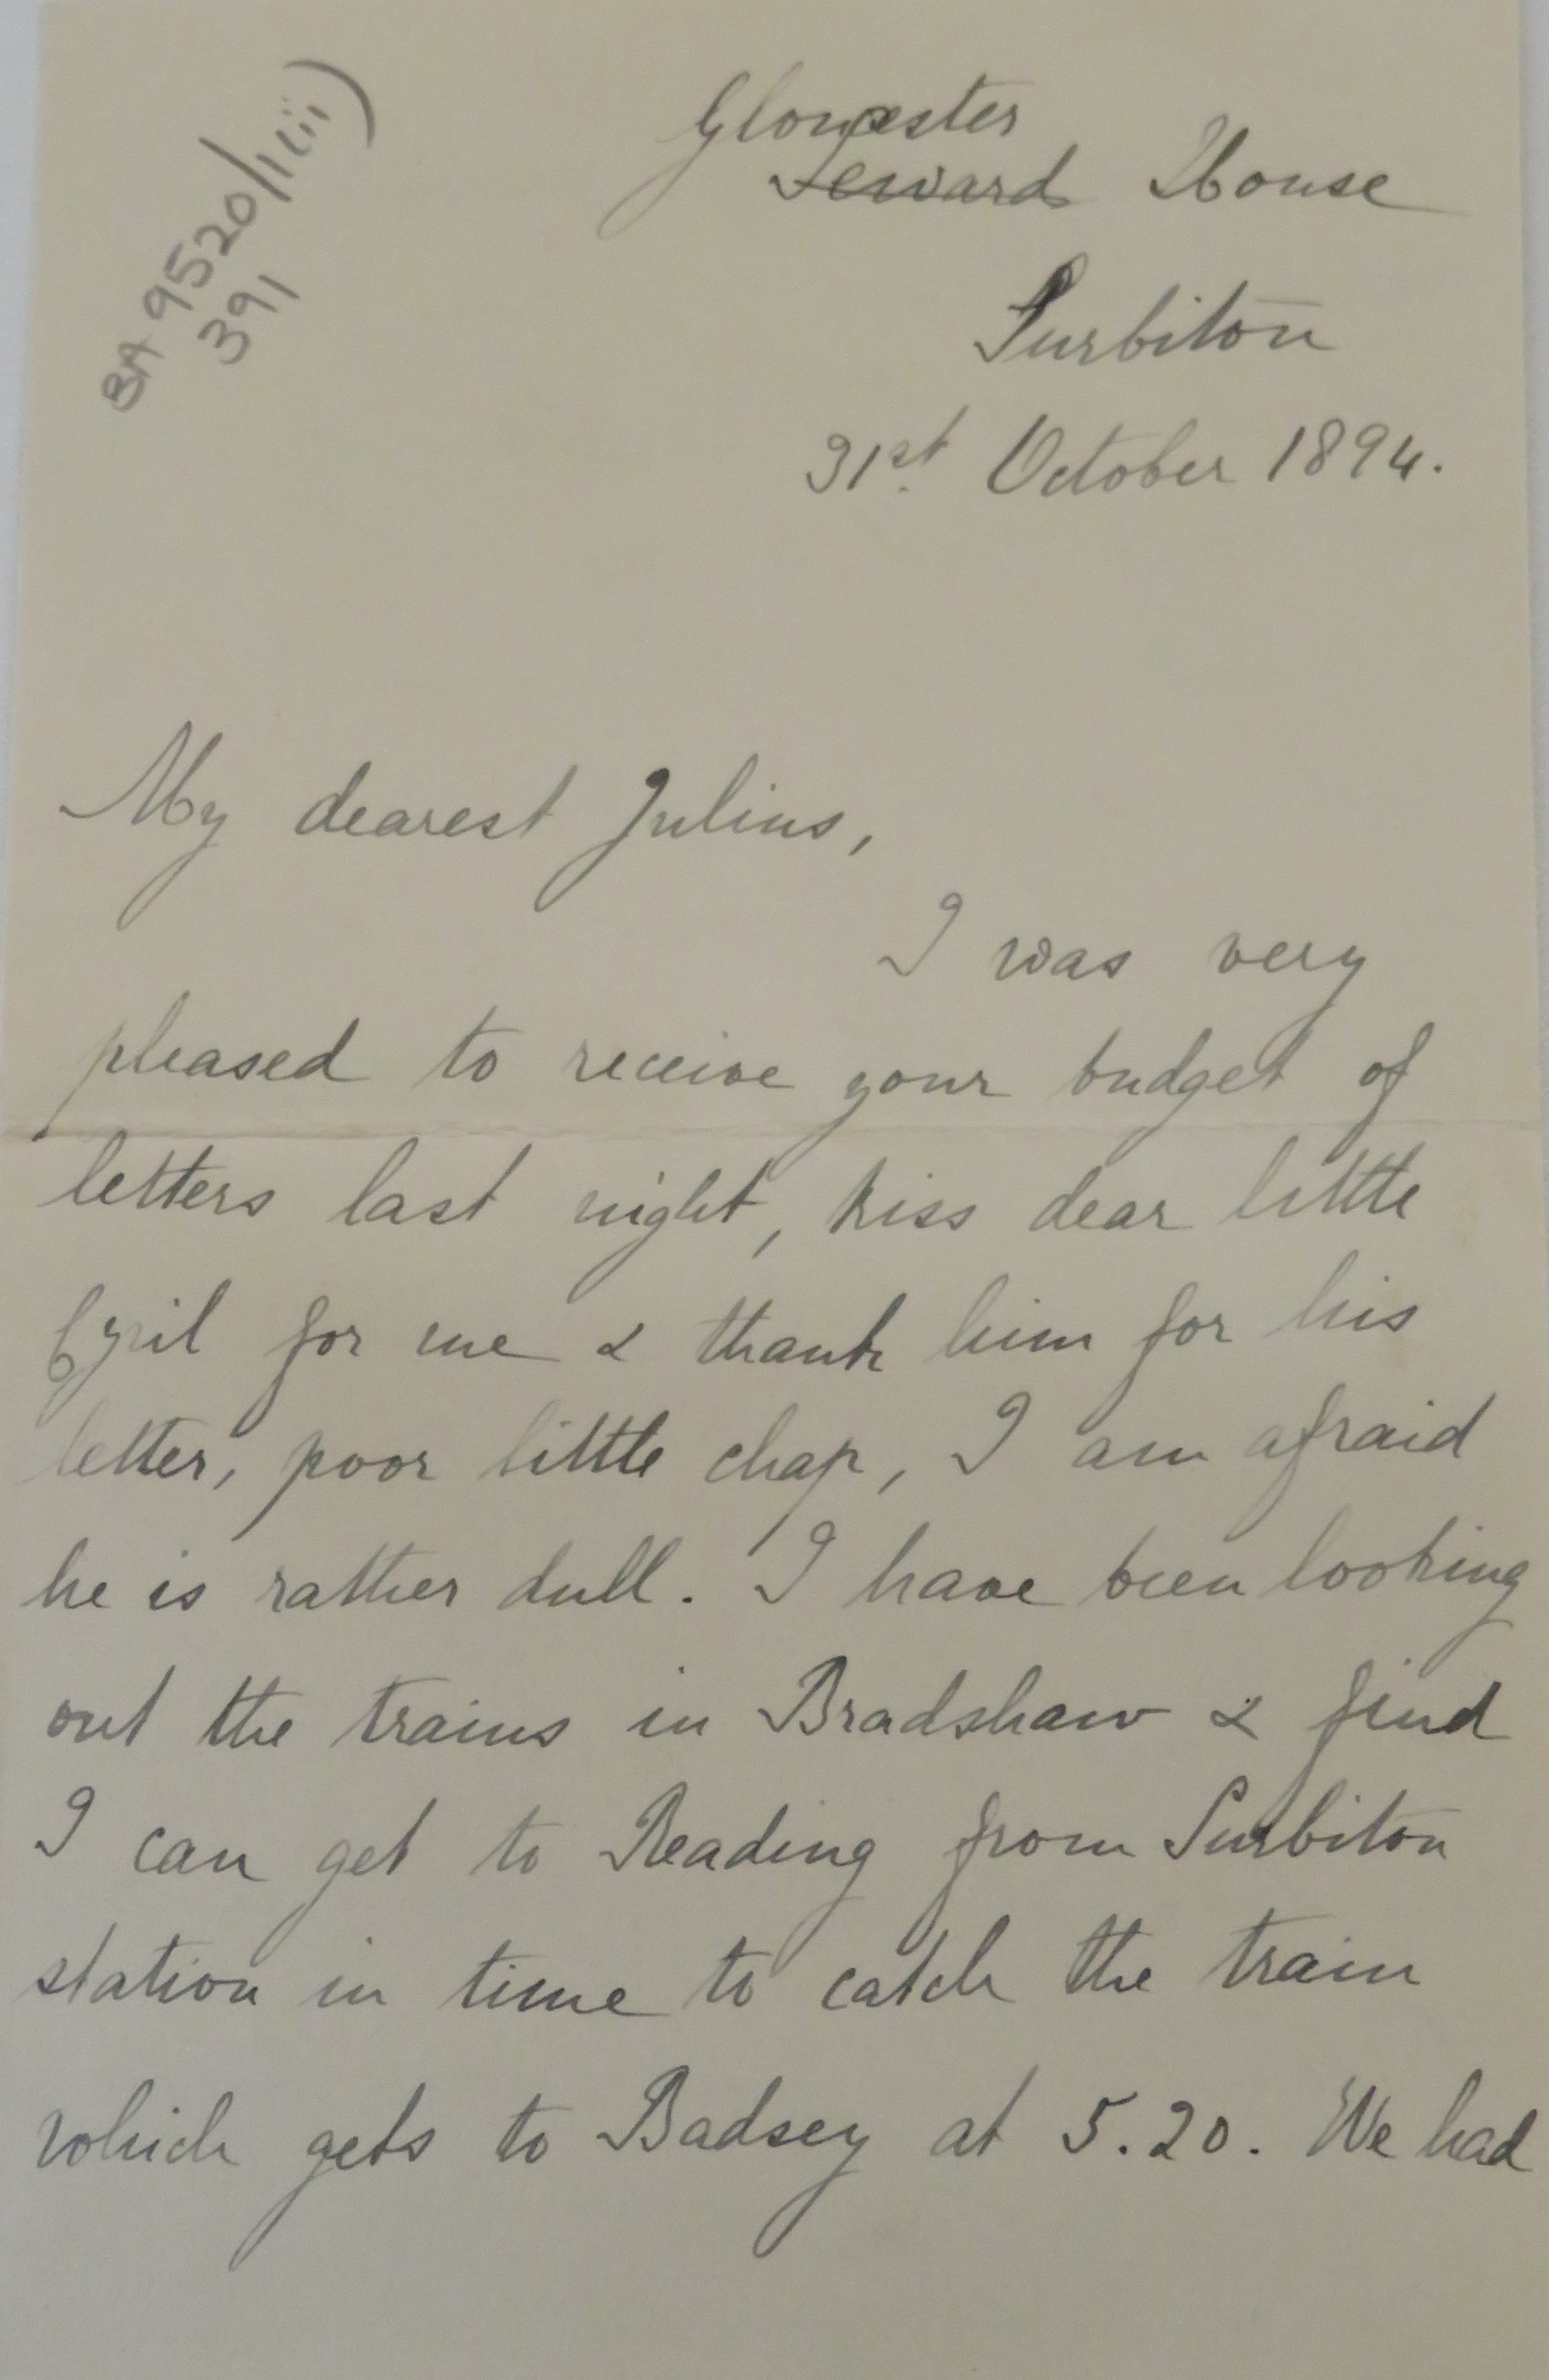 BA 9520/1(iii)
391
Gloucester
Seward House
Surbiton
31st October 1894.
My dearest Julius,
I was very
pleased to receive your budget of
letters last night, kiss dear little
Cyril for me & thank him for his
letter, poor little chap, I am afraid
he is rather dull. I have been looking
out the trains in Bradshaw & find
I can get to Reading from Surbiton
station in time to catch the train
which gets to Badsey at 5.20. We had